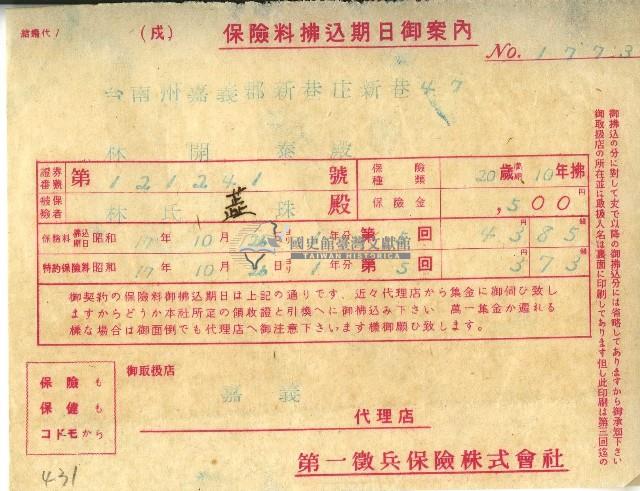 (戌) 保險料拂込期日御案內
No. 1773
台南州嘉義郡新巷庄新巷47
林開泰殿
證券番號 第121241號
保險種類 20歲滿期10年拂
被保險者 林氏 珠殿
保險金 ,500円
保險料拂込期日 昭和17年10月26日ヨリ1年分 第5回 43円85錢
特約保險料 昭和17年10月26日ヨリ1年分 第5回 373
國史館臺灣文獻館
TAIWAN HISTORICA
御契約の保險料御拂込期日は上記の通りです、近々代理店から集金に御伺ひ致し
ますからどうか本社所定の領收證と引換へに御拂込み下さい 萬一集金が遲れる
樣な場合は御面倒でも代理店へ御注意下さいます樣御願ひ致します。
御拂込の分に對して丈で以降の御拂込分には省略してありますから御承知下さい
御取扱店の所在並に取扱人名は裏面に印刷してあります但し此印刷は第三回迄の
保險も
保健も
コドモから
御取扱店
嘉義
代理店
第一徵兵保險株式會社
431